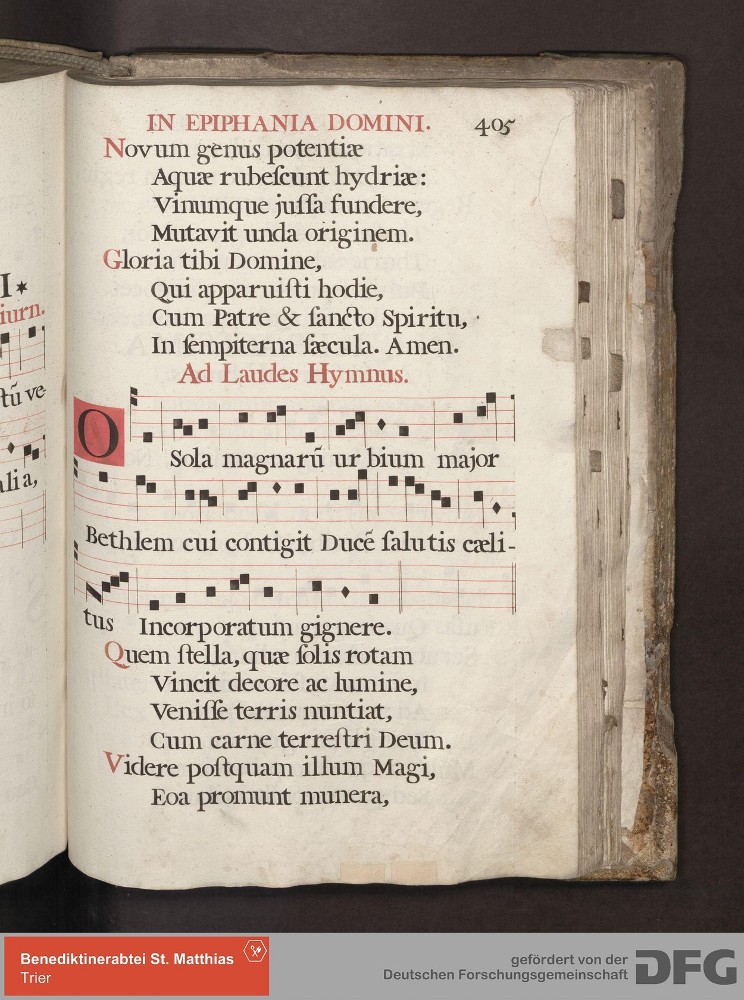 I*
iurn.
stū ve-
alia,
IN EPIPHANIA DOMINI. 405
Novum genus potentiæ
Aquæ rubeſcunt hydriæ:
Vinumque juſſa fundere,
Mutavit unda originem.
Gloria tibi Domine,
Qui apparuiſti hodie,
Cum Patre & ſancto Spiritu,
In ſempiterna ſæcula. Amen.
Ad Laudes Hymnus.
O Sola magnarū ur bium major
Bethlem cui contigit Ducē ſalutis cæli-
tus Incorporatum gignere.
Quem ſtella, quæ ſolis rotam
Vincit decore ac lumine,
Veniſſe terris nuntiat,
Cum carne terreſtri Deum.
Videre poſtquam illum Magi,
Eoa promunt munera,
Benediktinerabtei St. Matthias
Trier
gefördert von der
Deutschen Forschungsgemeinschaft
DFG